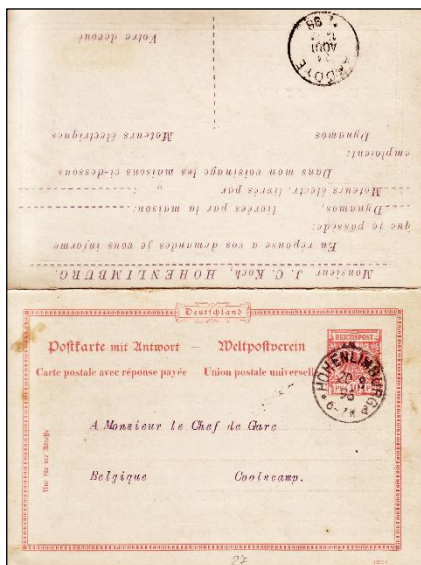 Monsieur J. C. Koch, HOHENLIMBURG.
En réponse a vos demandes je vous informe
que je possède:
Dynamos, livrées par la maison:
Moteurs électr. livrés par "
Dans mon voisinage les maisons ci-dessous
emploient:
Dynamos Moteurs électriques
Votre dévoué
AOUT
98
Deutschland
Postkarte mit Antwort — Weltpostverein
Carte postale avec réponse payée Union postale universelle
REICHSPOST
10
HOHENLIMBURG
A Monsieur le Chef de Gare
Belgique Coolscamp.
27